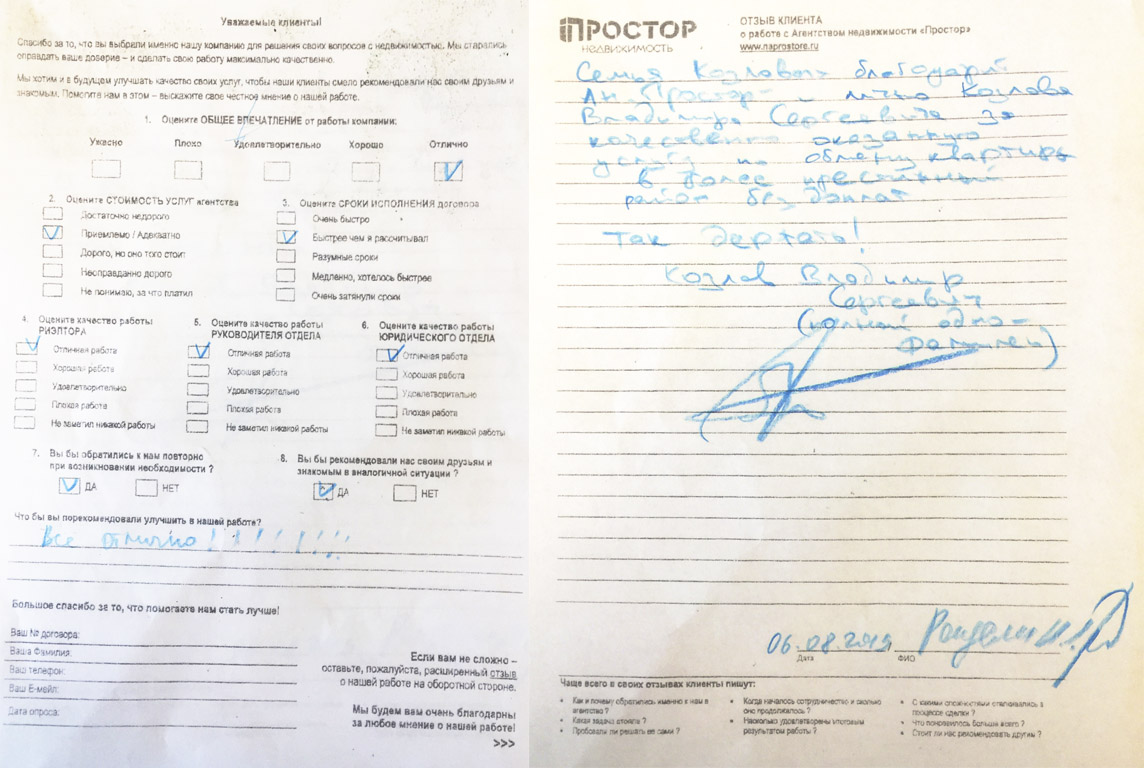 Уважаемые клиенты!
Спасибо за то, что вы выбрали именно нашу компанию для решения своих вопросов с недвижимостью. Мы старались
оправдать ваше доверие – и сделать свою работу максимально качественно.
Мы хотим и в будущем улучшать качество своих услуг, чтобы наши клиенты смело рекомендовали нас своим друзьям и
знакомым. Помогите нам в этом – выскажите свое честное мнение о нашей работе.
1. Оцените ОБЩЕЕ ВПЕЧАТЛЕНИЕ от работы компании:
Ужасно Плохо Удовлетворительно Хорошо Отлично
2. Оцените СТОИМОСТЬ УСЛУГ агентства
Достаточно недорого
Приемлемо / Адекватно
Дорого, но оно того стоит
Неоправданно дорого
Не понимаю, за что платил
3. Оцените СРОКИ ИСПОЛНЕНИЯ договора
Очень быстро
Быстрее чем я рассчитывал
Разумные сроки
Медленно, хотелось быстрее
Очень затянули сроки
4. Оцените качество работы
РИЭЛТОРА
Отличная работа
Хорошая работа
Удовлетворительно
Плохая работа
Не заметил никакой работы
5. Оцените качество работы
РУКОВОДИТЕЛЯ ОТДЕЛА
Отличная работа
Хорошая работа
Удовлетворительно
Плохая работа
Не заметил никакой работы
6. Оцените качество работы
ЮРИДИЧЕСКОГО ОТДЕЛА
Отличная работа
Хорошая работа
Удовлетворительно
Плохая работа
Не заметил никакой работы
7. Вы бы обратились к нам повторно
при возникновении необходимости ?
ДА НЕТ
8. Вы бы рекомендовали нас своим друзьям и
знакомым в аналогичной ситуации ?
ДА НЕТ
Что бы вы порекомендовали улучшить в нашей работе?
Все отлично!!!!!!!!
Большое спасибо за то, что помогаете нам стать лучше!
Ваш № договора:
Ваша Фамилия:
Ваш телефон:
Ваш E-мейл:
Дата опроса:
Если вам не сложно –
оставьте, пожалуйста, расширенный отзыв
о нашей работе на оборотной стороне.
Мы будем вам очень благодарны
за любое мнение о нашей работе!
>>>
ПРОСТОР
НЕДВИЖИМОСТЬ
ОТЗЫВ КЛИЕНТА
о работе с Агентством недвижимости «Простор»
www.naprostore.ru
Семья Козловых благодарит
Ан "Простор" и лично Козлова
Владимира Сергеевича за
качественно оказанную
услугу по обмену квартиры
в более престижный
район без доплат
Так держать!
Козлов Владимир
Сергеевич
(полный одно-
фамилец)
06.08.2019
Дата ФИО
Чаще всего в своих отзывах клиенты пишут:
Как и почему обратились именно к нам в
агентство?
Какая задача стояла ?
Пробовали ли решать ее сами ?
Когда началось сотрудничество и сколько
оно продолжалось ?
Насколько удовлетворены итоговым
результатом работы ?
С какими сложностями сталкивались в
процессе сделки ?
Что понравилось больше всего ?
Стоит ли нас рекомендовать другим ?